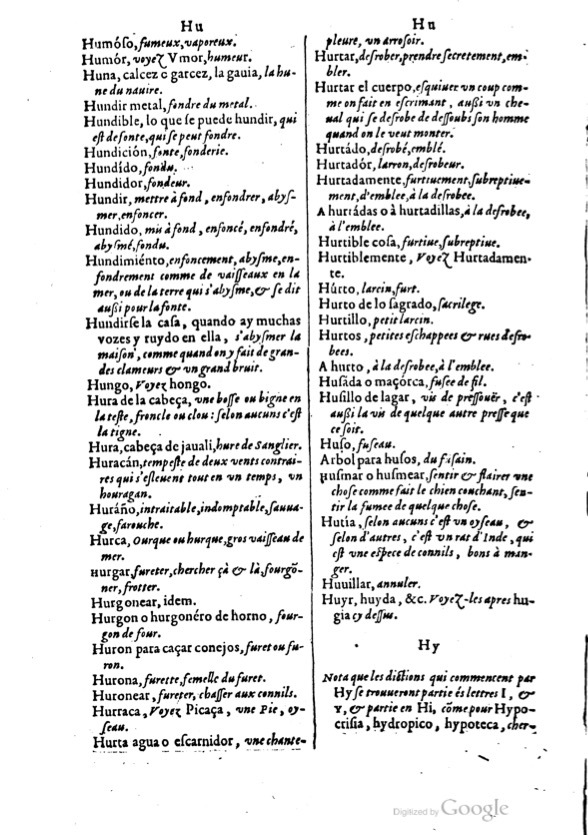 Hu
Humóſo, fumeux, vaporeux.
Humór, voyez Vmor, humeur.
Huna, calcez o garcez, la gauia, la hu-
ne du nauire.
Hundir metal, fondre du metal.
Hundible, lo que ſe puede hundir, qui
eſt defonte, qui ſe peut fondre.
Hundición, fonte, fonderie.
Hundído, fondu.
Hundidor, fondeur.
Hundir, mettre à fond, enfondrer, abyſ-
mer, enfoncer.
Hundido, mis à fond, enfoncé, enfondré,
abyſmé, fondu.
Hundimiénto, enfoncement, abyſme, en-
fondrement comme de vaiſſeaux en la
mer, ou de la terre qui s'abyſme, & ſe dit
auſſi pour la fonte.
Hundirſe la caſa, quando ay muchas
vozes y ruydo en ella, s'abyſmer la
maiſon, comme quand on y fait de gran-
des clameurs & vn grand bruit.
Hungo, Voyez hongo.
Hura de la cabeça, vne boſſe ou bigne en
la teſte, froncle ou clou: ſelon aucuns c'eſt
la tigne.
Hura, cabeça de jauali, hure de Sanglier.
Huracán, tempeſte de deux vents contrai-
res qui s'eſleuent tout en un temps, un
houragan.
Huráño, intraitable, indomptable, ſauua-
ge, farouche.
Hurca, Ourque ou hurque, gros vaiſſeau de
mer.
Hurgar, fureter, chercher çà & là, fourgō-
ner, frotter.
Hurgonear, idem.
Hurgon o hurgonéro de horno, four-
gon de four.
Huron para caçar conejos, furet ou fu-
ron.
Hurona, furette, femelle du furet.
Huronear, fureter, chaſſer aux connils.
Hurraca, Voyez Picaça, vne Pie, oy-
ſeau.
Hurta agua o eſcarnidor, vne chante-
Hu
pleure, un arroſoir.
Hurtar, deſrober, prendre ſecretement, em-
bler.
Hurtar el cuerpo, eſquiuer un coup com-
me on fait en eſcrimant, auſſi un che-
ual qui ſe deſrobe de deſſoubs ſon homme
quand on le veut monter.
Hurtádo, deſrobé, emblé.
Hurtadór, larron, deſrobeur.
Hurtadamente, furtiuement, ſubreptiue-
ment, d'emblee, à la deſrobee.
A hurtádas o à hurtadillas, à la deſrobee,
à l'emblee.
Hurtible coſa, furtiue, ſubreptiue.
Hurtiblemente, Voyez Hurtadamen-
te.
Húrto, larcin, furt.
Hurto de lo ſagrado, ſacrilege.
Hurtillo, petit larcin.
Hurtos, petites eſchappees & rues deſro-
bees.
A hurto, à la deſrobee, à l'emblee.
Huſáda o maçorca, fuſee de fil.
Huſillo de lagar, vis de preſſouër, c'eſt
auſſi la vis de quelque autre preſſe que
ce ſoit.
Huſo, fuſeau.
Arbol para huſos, du fuſain.
Huſmar o huſmear, ſentir & flairer vne
choſe comme fait le chien couchant, ſen-
tir la fumee de quelque choſe.
Hutía, ſelon aucuns c'eſt un oyſeau, &
ſelon d'autres, c'eſt un rat d'Inde, qui
eſt vne eſpece de connils, bons à man-
ger.
Huuillar, annuler.
Huyr, huyda, &c. Voyez-les apres hu-
gia cy deſſus.
Hy
Nota que les dictions qui commencent par
Hy ſe trouueront partie és lettres I, &
Y, & partie en Hi, cōme pour Hypo-
criſia, hydropico, hypoteca, cher-
Digitized by Google